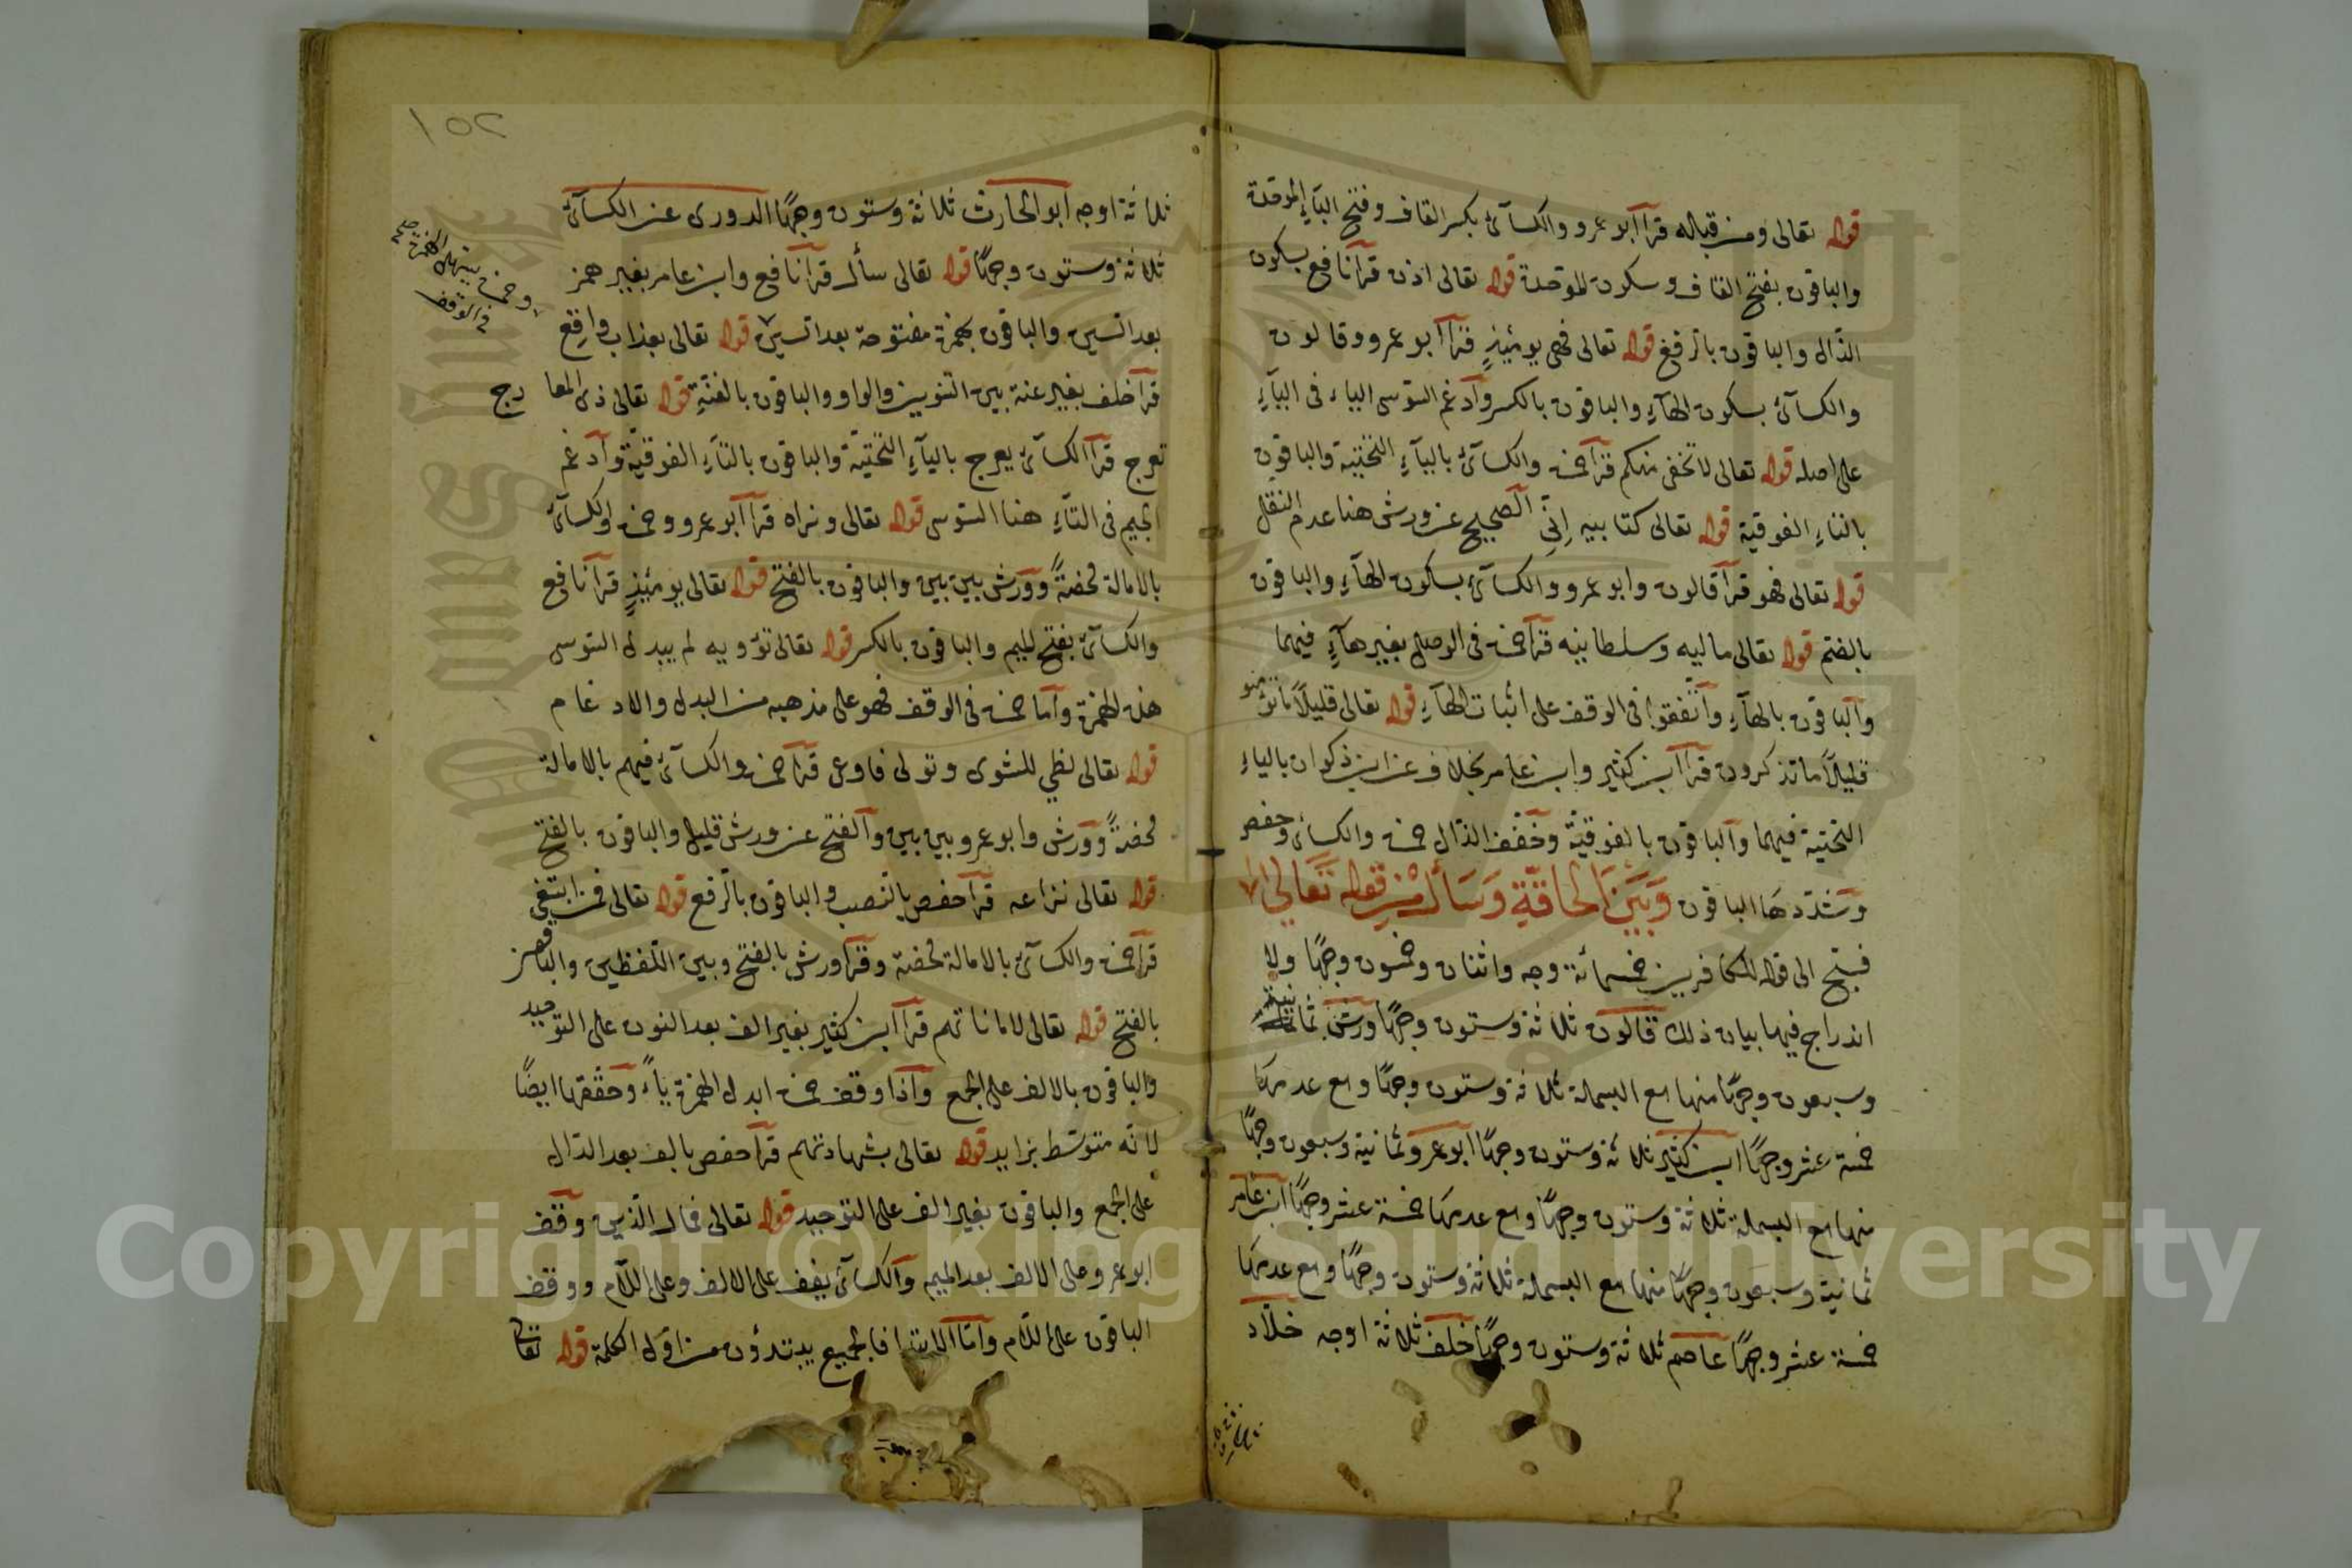 قوله تعالى ومن قبله قرأ أبو عمرو والكسآئى بكسر القاف وفتح البآء الموحدة
والباقون بفتح القاف وسكون الموحدة قوله تعالى اذن قرأ نافع بسكون
الذال والباقون بالرفع قوله تعالى فهى يومئذٍ قرأ أبو عمرو وقالون
والكسآئى بسكون الهآء والباقون بالكسر وأدغم السّوسى الياء فى اليآء
على اصله قوله تعالى لا تخفى منكم قرأ حمزة والكسآئى باليآء التحتية والباقون
بالتاء الفوقية قوله تعالى كتابيه إنّى الصحيح عن ورش هنا عدم النقل
قوله تعالى فهو قرأ قالون وابو عمرو والكسآئى بسكون الهآء والباقون
بالضم قوله تعالى ماليه وسلطانيه قرأ حمزة فى الوصل بغير هآءٍ فيهما
والباقون بالهآء واتّفقوا فى الوقف على اثبات الهآء قوله تعالى قليلاً ما تؤمنو
قليلاً ما تذكرون قرأ ابن كثير وابن عامر بخلاف عن ابن ذكوان بالياء
التحتية فيهما والباقون بالفوقيّة وخفّف الذال حمزة والكسائى وحفص
وشدّدها الباقون وَبَيْنَ الحاقّةِ وَسَأَلَ مِنْ قوله تَعَالى
فسبّح الى قوله للكافرين خمسمائة وجه واثنان وخمسون وجهًا ولا
اندراج فيها بيان ذلك قالون ثلاثة وستون وجهًا ورش ثمانية
وسبعون وجهًا منها مع البسملة ثلاثة وستون وجهًا ومع عدمها
خمسة عشر وجهًا ابن كثير ثلاثة وستون وجهًا أبو عمرو ثمانية وسبعون وجهًا
منها مع البسملة ثلاثة وستون وجهًا ومع عدمها خمسة عشر وجهًا ابن عامر
ثمانية وسبعون وجهًا منها مع البسملة ثلاثة وستون وجهًا ومع عدمها
خمسة عشر وجهًا عاصم ثلاثة وستون وجهًا خلف ثلاثة اوجه خلّاد
١٥٢
ثلاثة اوجه أبو الحارث ثلاثة وستون وجهًا الدورى عن الكسآئى
ثلاثة وستون وجهًا قوله تعالى سأل قرأ نافع وابن عامر بغير همز
بعد السين والباقون بهمزة مفتوحة بعد السين قوله تعالى بعذاب واقع
وحمزة بتسهيل الهمزة
فى الوقف
صح
قرأ خلف بغير غنة بين التنوين والواو والباقون بالغنّةِ قوله تعالى ذى المعا رج
تعرج قرأ الكسآئى يعرج باليآءِ التّحتيّة والباقون بالتّاءِ الفوقيّة وأدغم
الجيم فى التّاءِ هنا السّوسى قوله تعالى ونراه قرأ أبو عمرو وحمزة والكسآئى
بالامالة محضةً وورش بين بين والباقون بالفتح قوله تعالى يومئذٍ قرأ نافع
والكسآئى بفتح الميم والباقون بالكسر قوله تعالى تؤويه لم يبدل السّوسى
هذه الهمزة وأما حمزة فى الوقف فهو على مذهبه من البدل والادغام
قوله تعالى لظى للشوى وتولى فاوعى قرأ حمزة والكسآئى فيهم بالامالة
محضةً وورش وابو عمرو بين بين والفتح عن ورش قليل والباقون بالفتح
قوله تعالى نزاعه قرأ حفص بالنّصب والباقون بالرّفع قوله تعالى فمن ابتغى
قرأ حمزة والكسآئى بالامالة محضة وقرأ ورش بالفتح وبين اللّفظين والباقون
بالفتح قوله تعالى لاماناتهم قرأ ابن كثير بغير الف بعد النون على التوحيد
والباقون بالالف على الجمع واذا وقف حمزة ابدل الهمزة ياءً وحقّقها ايضًا
لانّه متوسّط بزايد قوله تعالى بشهادتهم قرأ حفص بالف بعد الدّال
على الجمع والباقون بغير الف على التوحيد قوله تعالى فمال الّذين وقف
ابو عمرو على الالف بعد الميم والكسآئى يقف على الالف وعلى اللّام ووقف
الباقون على اللّام وأمّا الابتدا فالجميع يبتدؤن من اوّل الكلمة قوله تعا
Copyright © King Saud University